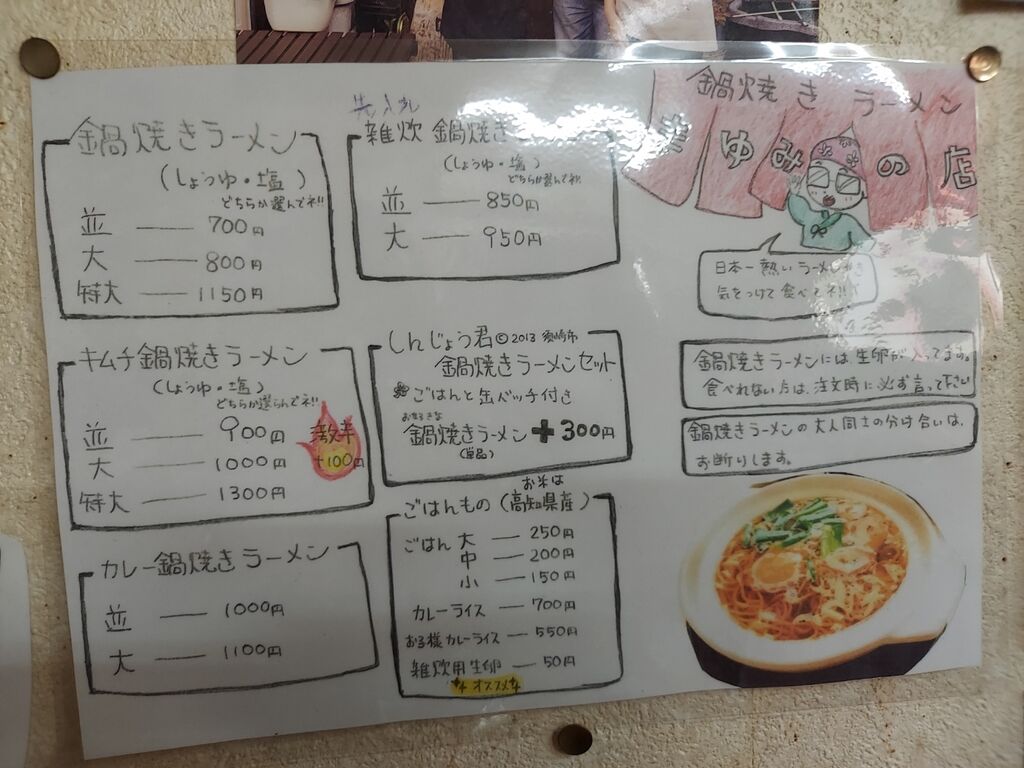 鍋焼きラーメン
(しょうゆ・塩)
どちらか選んでネ!!
並 700円
大 800円
特大 1150円
雑炊 鍋焼き
(しょうゆ・塩)
どちらか選んでネ!!
並 850円
大 950円
鍋焼き ラーメン
ゆみの店
日本一熱いラーメン
気をつけて食べてネ!!
キムチ鍋焼きラーメン
(しょうゆ・塩)
どちらか選らんでネ!!
並 900円
大 1000円
特大 1300円
激辛
+100円
しんじょう君 © 2013 須崎市
鍋焼きラーメンセット
ごはんと缶バッチ付き
お好きな
鍋焼きラーメン + 300円
(単品)
鍋焼きラーメンには生卵が入ってます。
食べれない方は、注文時に必ず言って下さい
鍋焼きラーメンの大人同士の分け合いは、
お断りします。
カレー鍋焼きラーメン
並 1000円
大 1100円
お米は
ごはんもの (高知県産)
ごはん 大 250円
中 200円
小 150円
カレーライス 700円
お子様カレーライス 550円
雑炊用生卵 50円
オススメ